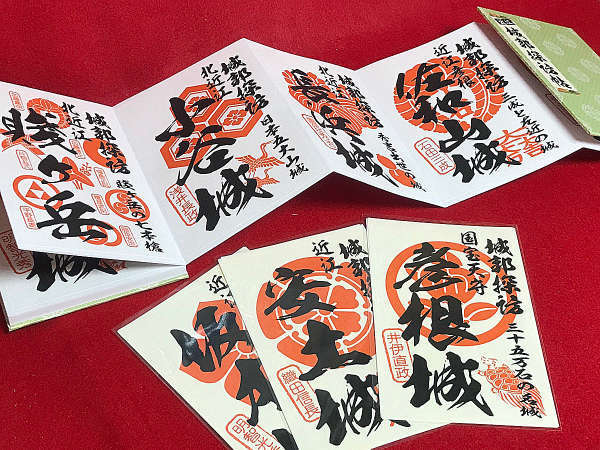 城郭探訪
北近江
賤ヶ岳
賤ヶ岳の七本槍
城郭探訪
北近江
小谷城
日本五大山城
浅井長政
城郭探訪
北近江
長浜城
城郭探訪
近江
佐和山城
三成に過ぎたる
石田三成
城郭探訪
城郭探訪
近江
安土城
織田信長
城郭探訪
国宝天守
彦根城
三十五万石の名城
井伊直政
坂本城
明智光秀